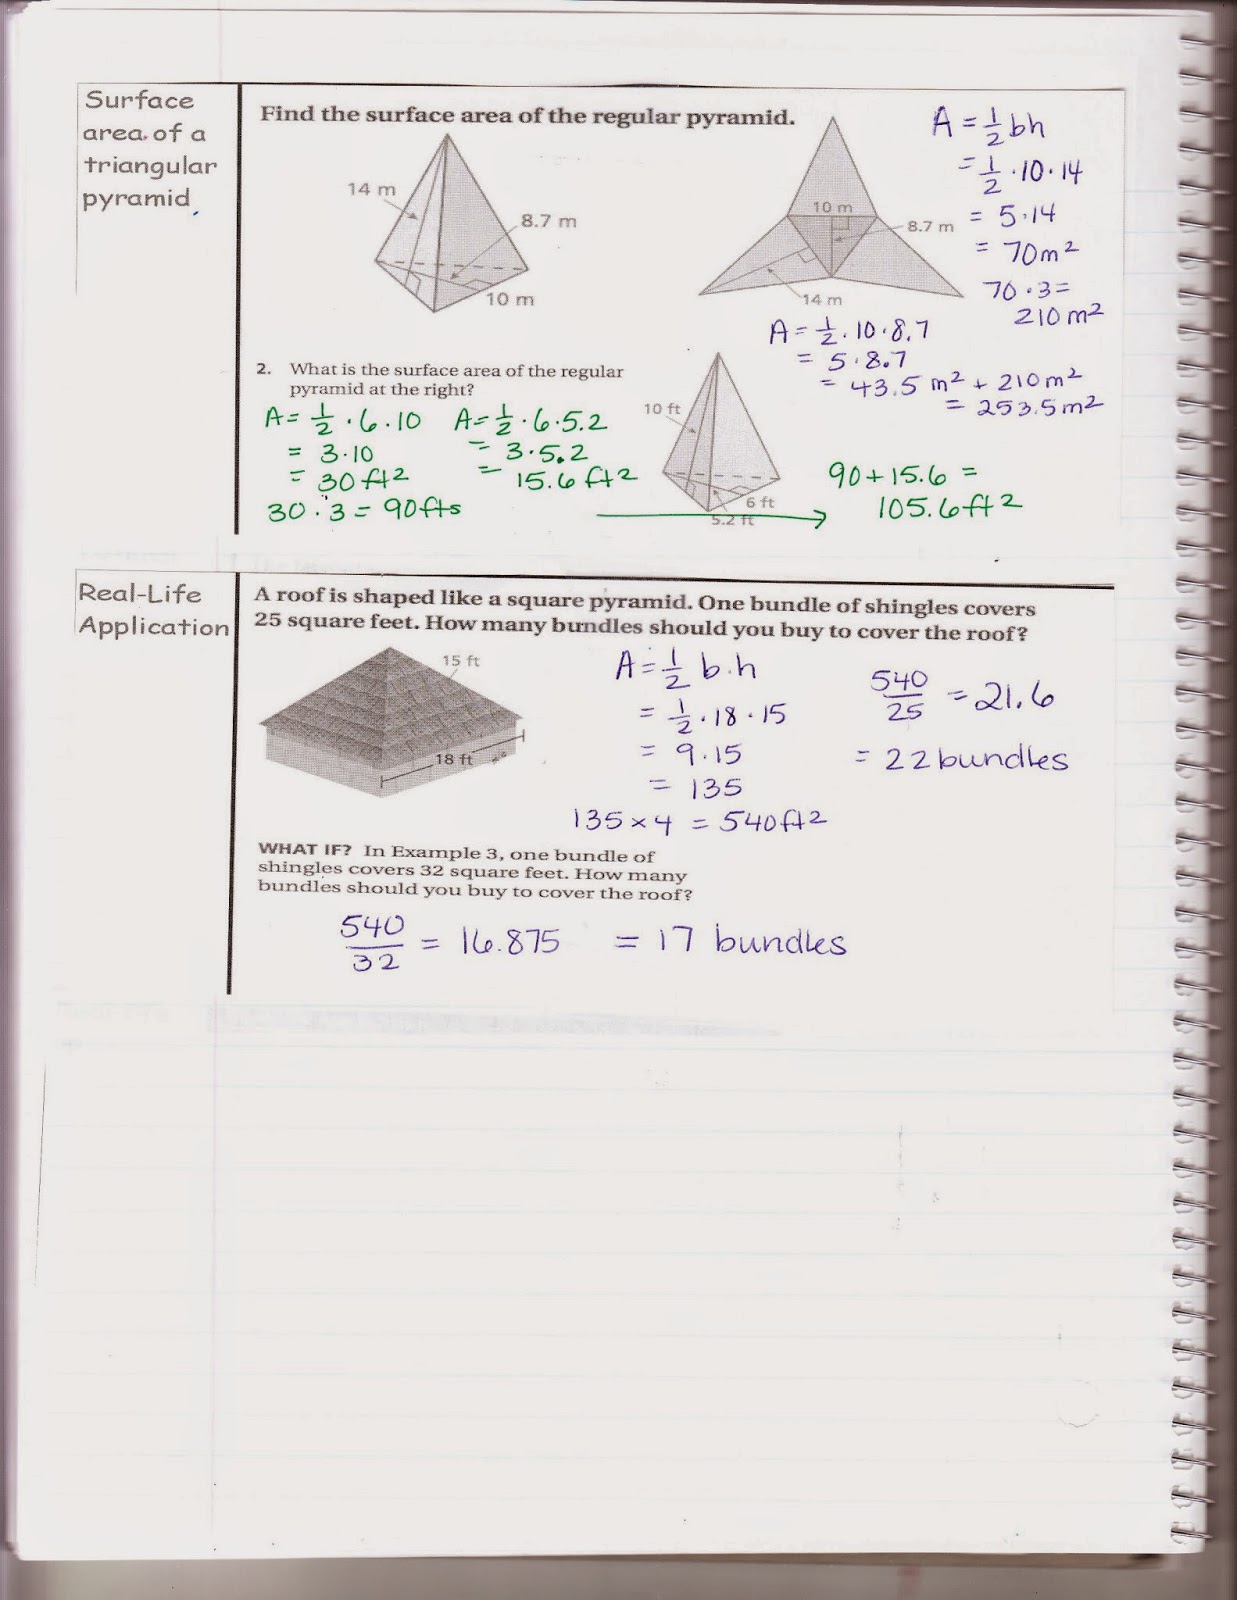 Surface
area of a
triangular
pyramid
Find the surface area of the regular pyramid.
14 m
8.7 m
10 m
10 m
8.7 m
14 m
A = 1/2 bh
= 1/2 · 10 · 14
= 5 · 14
= 70m²
70 · 3 =
210 m²
A = 1/2 · 10 · 8.7
= 5 · 8.7
= 43.5 m² + 210 m²
= 253.5 m²
2. What is the surface area of the regular
pyramid at the right?
A = 1/2 · 6 · 10
= 3 · 10
= 30 ft²
30 · 3 = 90fts
A = 1/2 · 6 · 5.2
= 3 · 5.2
= 15.6 ft²
10 ft
6 ft
5.2 ft
90 + 15.6 =
105.6 ft²
Real-Life
Application
A roof is shaped like a square pyramid. One bundle of shingles covers
25 square feet. How many bundles should you buy to cover the roof?
15 ft
18 ft
A = 1/2 b · h
= 1/2 · 18 · 15
= 9 · 15
= 135
135 × 4 = 540 ft²
540/25 = 21.6
= 22 bundles
WHAT IF? In Example 3, one bundle of
shingles covers 32 square feet. How many
bundles should you buy to cover the roof?
540/32 = 16.875 = 17 bundles